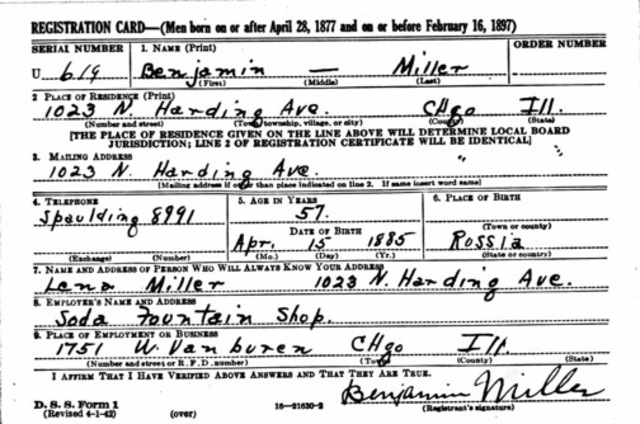 REGISTRATION CARD—(Men born on or after April 28, 1877 and on or before February 16, 1897)
SERIAL NUMBER 1. NAME (Print) ORDER NUMBER
U 619 Benjamin — Miller
(First) (Middle) (Last)
2 PLACE OF RESIDENCE (Print)
1023 N. Harding Ave. CHgo Ill.
(Number and street) (Town, township, village, or city) (County) (State)
[THE PLACE OF RESIDENCE GIVEN ON THE LINE ABOVE WILL DETERMINE LOCAL BOARD
JURISDICTION; LINE 2 OF REGISTRATION CERTIFICATE WILL BE IDENTICAL]
3. MAILING ADDRESS
1023 N. Harding Ave. " "
[Mailing address if other than place indicated on line 2. If same insert word same]
4. TELEPHONE 5. AGE IN YEARS 6. PLACE OF BIRTH
Spaulding 8991 57.
DATE OF BIRTH (Town or county)
Apr. 15 1885 Rossia
(Exchange) (Number) (Mo.) (Day) (Yr.) (State or country)
7. NAME AND ADDRESS OF PERSON WHO WILL ALWAYS KNOW YOUR ADDRESS
Lena Miller 1023 N. Harding Ave.
8. EMPLOYER'S NAME AND ADDRESS
Soda Fountain Shop.
9. PLACE OF EMPLOYMENT OR BUSINESS
1751 W. Van buren CHgo Ill.
(Number and street or R. F. D. number) (Town) (County) (State)
I AFFIRM THAT I HAVE VERIFIED ABOVE ANSWERS AND THAT THEY ARE TRUE.
Benjamin Miller
D. S. S. Form 1
(Revised 4-1-42) (over) 16—21630-2 (Registrant's signature)